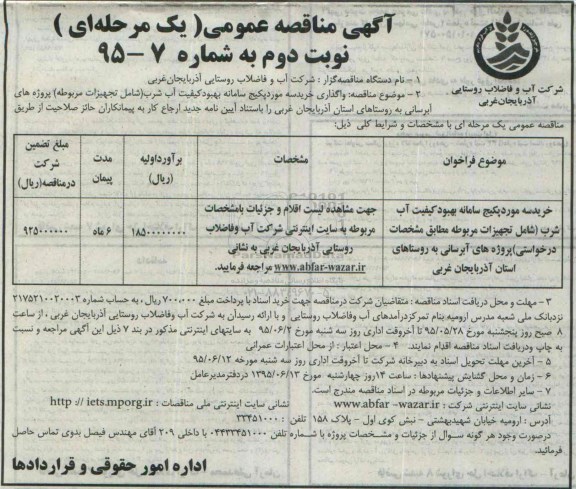 آگهی مناقصه عمومی( یک مرحله‌ای )
نوبت دوم به شماره ۷ – ۹۵
شرکت آب و فاضلاب روستایی
آذربایجان‌غربی
۱ – نام دستگاه مناقصه‌گزار : شرکت آب و فاضلاب روستایی آذربایجان‌غربی
۲ – موضوع مناقصه: واگذاری خریدسه موردپکیج سامانه بهبودکیفیت آب شرب(شامل تجهیزات مربوطه) پروژه های
آبرسانی به روستاهای استان آذربایجان غربی را باستناد آیین نامه جدید ارجاع کار به پیمانکاران حائز صلاحیت از طریق
مناقصه عمومی یک مرحله ای با مشخصات و شرایط کلی ذیل:
موضوع فراخوان
مشخصات
برآورداولیه (ریال)
مدت پیمان
مبلغ تضمین شرکت درمناقصه(ریال)
خریدسه موردپکیج سامانه بهبودکیفیت آب
شرب (شامل تجهیزات مربوطه مطابق مشخصات
درخواستی)پروژه های آبرسانی به روستاهای
استان آذربایجان غربی
جهت مشاهده لیست اقلام و جزئیات بامشخصات
مربوطه به سایت اینترنتی شرکت آب وفاضلاب
روستایی آذربایجان غربی به نشانی
www.abfar-wazar.ir مراجعه فرمایید.
۱۸۵۰۰۰۰۰۰۰۰
۶ ماه
۹۲۵۰۰۰۰۰۰
۳ – مهلت و محل دریافت اسناد مناقصه : متقاضیان شرکت درمناقصه جهت خرید اسناد با پرداخت مبلغ ۷۰۰۰۰۰ ریال ، به حساب شماره ۲۱۷۵۲۱۰۰۲۰۰۰۳
نزدبانک ملی شعبه مدرس ارومیه،بنام تمرکزدرآمدهای آب وفاضلاب روستایی و با ارائه رسیدان به شرکت آب وفاضلاب روستایی آذربایجان غربی ، از ساعت
۸ صبح روز پنجشنبه مورخ ۹۵/۰۵/۲۸ تا آخروقت اداری روز سه شنبه مورخ ۹۵/۰۶/۲ به سایتهای اینترنتی مذکور در بند ۷ ذیل این آگهی مراجعه و نسبت
به چاپ ودریافت اسناد مناقصه اقدام نمایند. ۴ – محل اعتبار : از محل اعتبارات عمرانی
۵ – آخرین مهلت تحویل اسناد به دبیرخانه شرکت تا آخروقت اداری روز سه شنبه مورخه ۹۵/۰۶/۱۲
۶ – زمان و محل گشایش پیشنهادها : ساعت ۱۴روز چهارشنبه مورخ ۱۳۹۵/۰۶/۱۳ دردفترمدیرعامل
۷ – سایر اطلاعات و جزئیات مربوطه در اسناد مناقصه مندرج است.
نشانی سایت اینترنتی شرکت : www.abfar -wazar.ir نشانی سایت اینترنتی ملی مناقصات : http :// iets.mporg.ir
آدرس : ارومیه خیابان شهیدبهشتی – نبش کوی اول – پلاک ۱۵۸ تلفن : ۳۳۴۵۱۰۰۰
درصورت وجود هر گونه سوال از جزئیات و مشخصات پروژه با شماره تلفن ۰۴۴۳۳۴۵۱۰۰۰ با داخلی ۲۰۹ آقای مهندس فیصل بدوی تماس حاصل
فرمائید.
اداره امور حقوقی و قراردادها